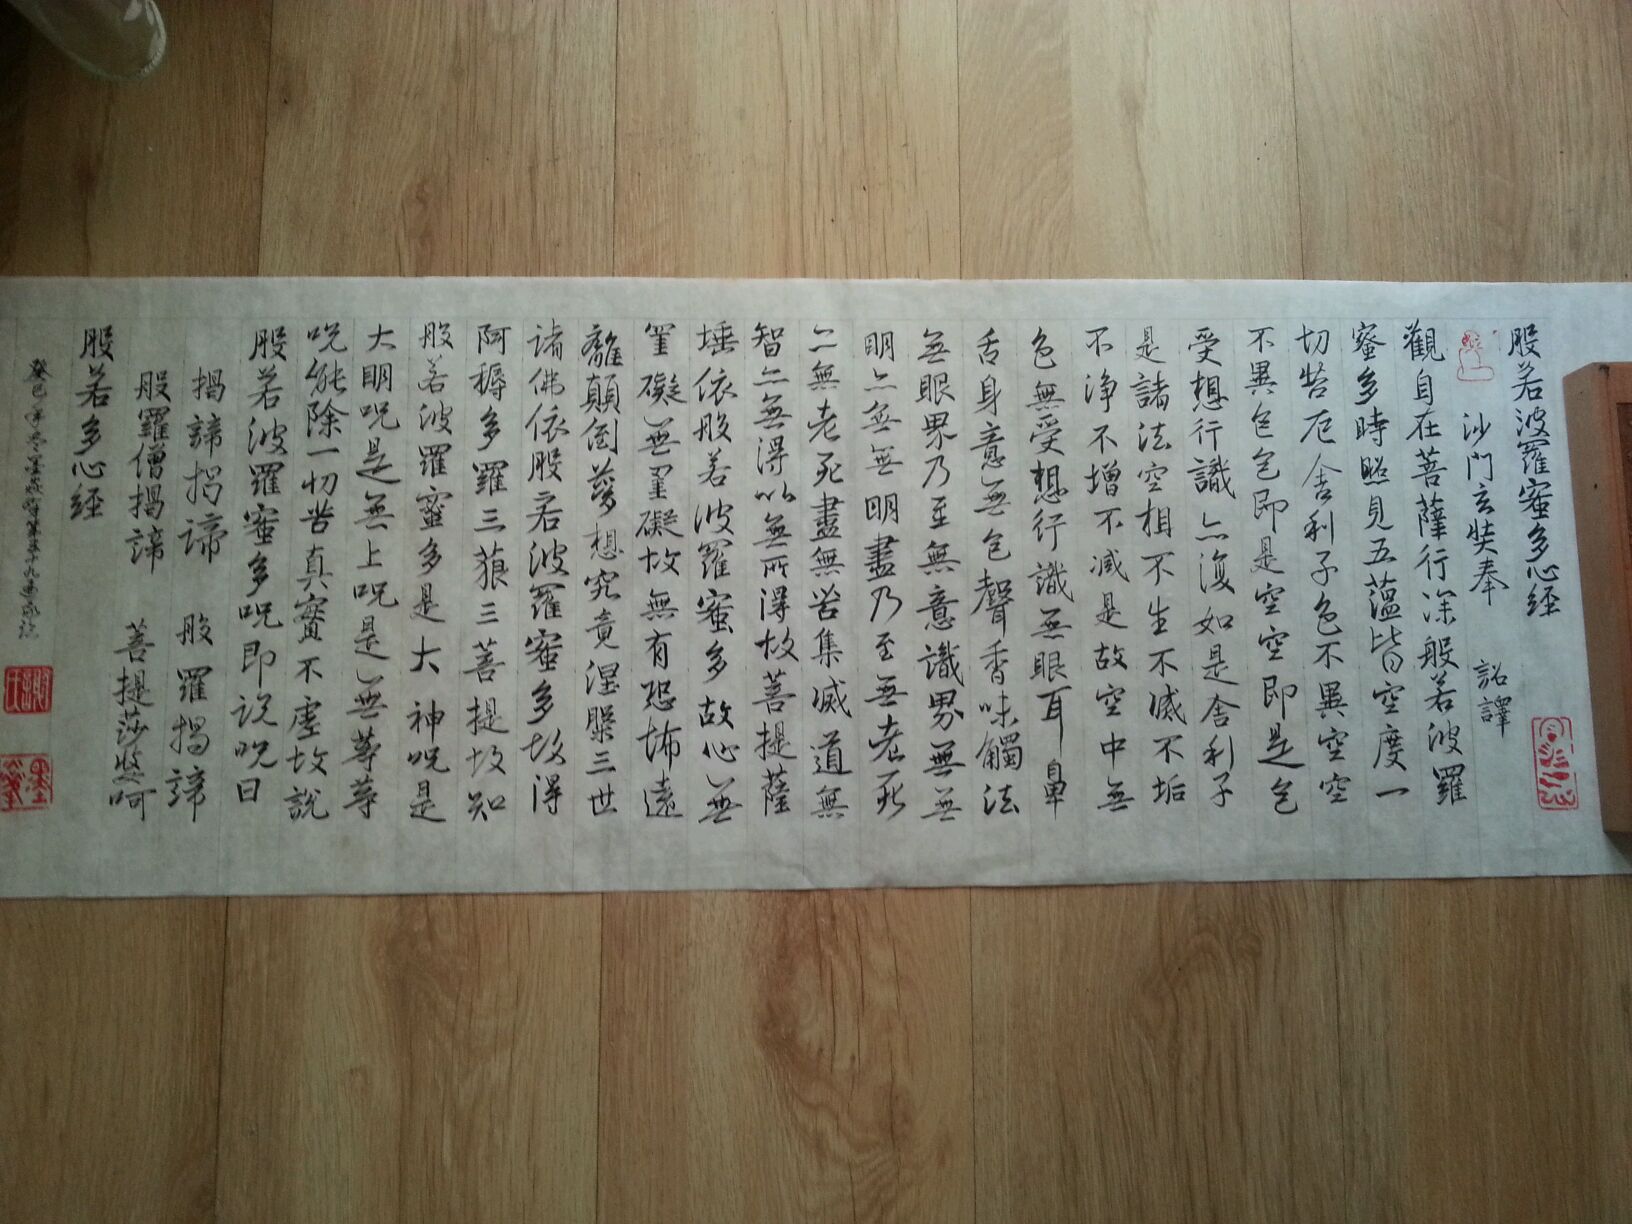 般若波羅蜜多心経
沙門玄奘奉 詔譯
觀自在菩薩行深般若波羅
蜜多時照見五蘊皆空度一
切苦厄舍利子色不異空空
不異色色即是空空即是色
受想行識亦復如是舍利子
是諸法空相不生不滅不垢
不浄不增不減是故空中無
色無受想行識無眼耳鼻
舌身意無色聲香味觸法
無眼界乃至無意識界無無
明亦無無明盡乃至無老死
亦無老死盡無苦集滅道無
智亦無得以無所得故菩提薩
埵依般若波羅蜜多故心無
罣礙無罣礙故無有恐怖遠
離顛倒夢想究竟涅槃三世
諸佛依般若波羅蜜多故得
阿耨多羅三藐三菩提故知
般若波羅蜜多是大神呪是
大明呪是無上呪是無等等
呪能除一切苦真實不虛故説
般若波羅蜜多呪即説呪曰
揭諦揭諦 般羅揭諦
般羅僧揭諦 菩提莎婆呵
般若多心経
癸巳年冬墨